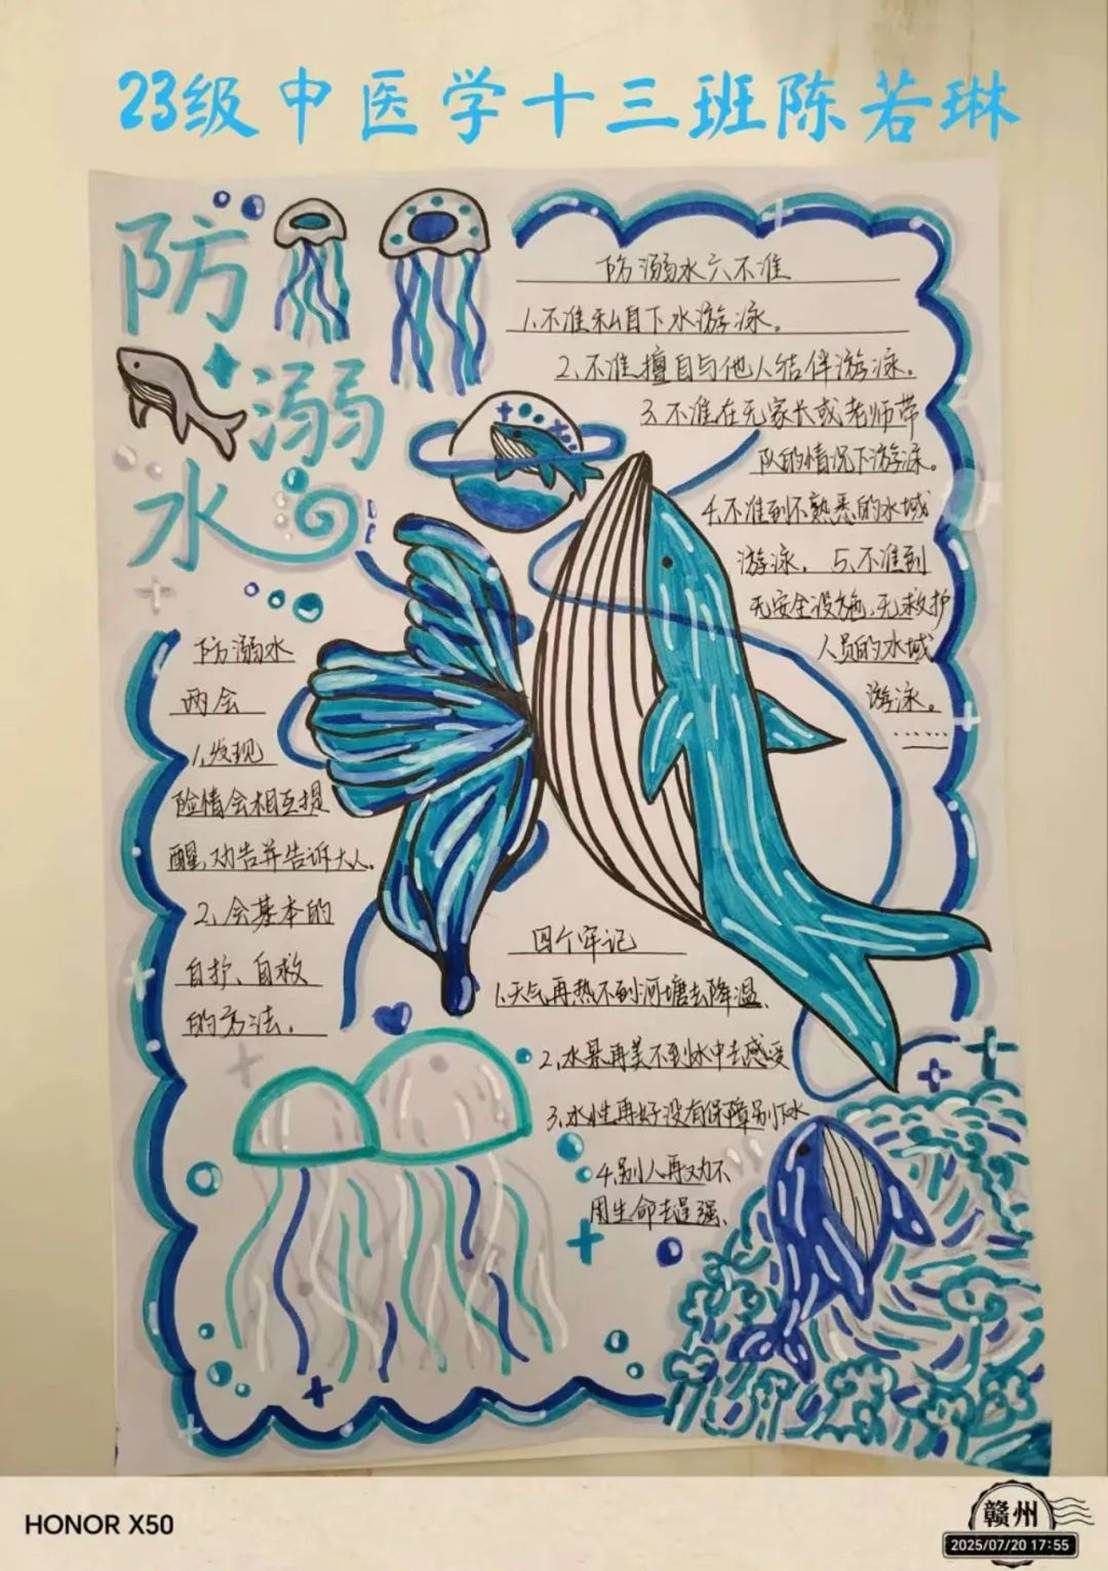 23级中医学十三班陈若琳
防
溺
水
防溺水六不准
1.不准私自下水游泳。
2.不准擅自与他人结伴游泳。
3.不准在无家长或老师带
队的情况下游泳。
4.不准到不熟悉的水域
游泳。5.不准到
无安全设施、无救护
人员的水域
游泳。
......
防溺水
两会
1.发现
险情会相互提
醒、劝告并告诉大人。
2.会基本的
自护、自救
的方法.
四个牢记
1.天气再热不到河塘去降温、
2.水景再美不到水中去感受
3.水性再好没有保障别下水
4.别人再劝不
用生命去逞强、
HONOR X50
赣州
2025/07/20 17:55